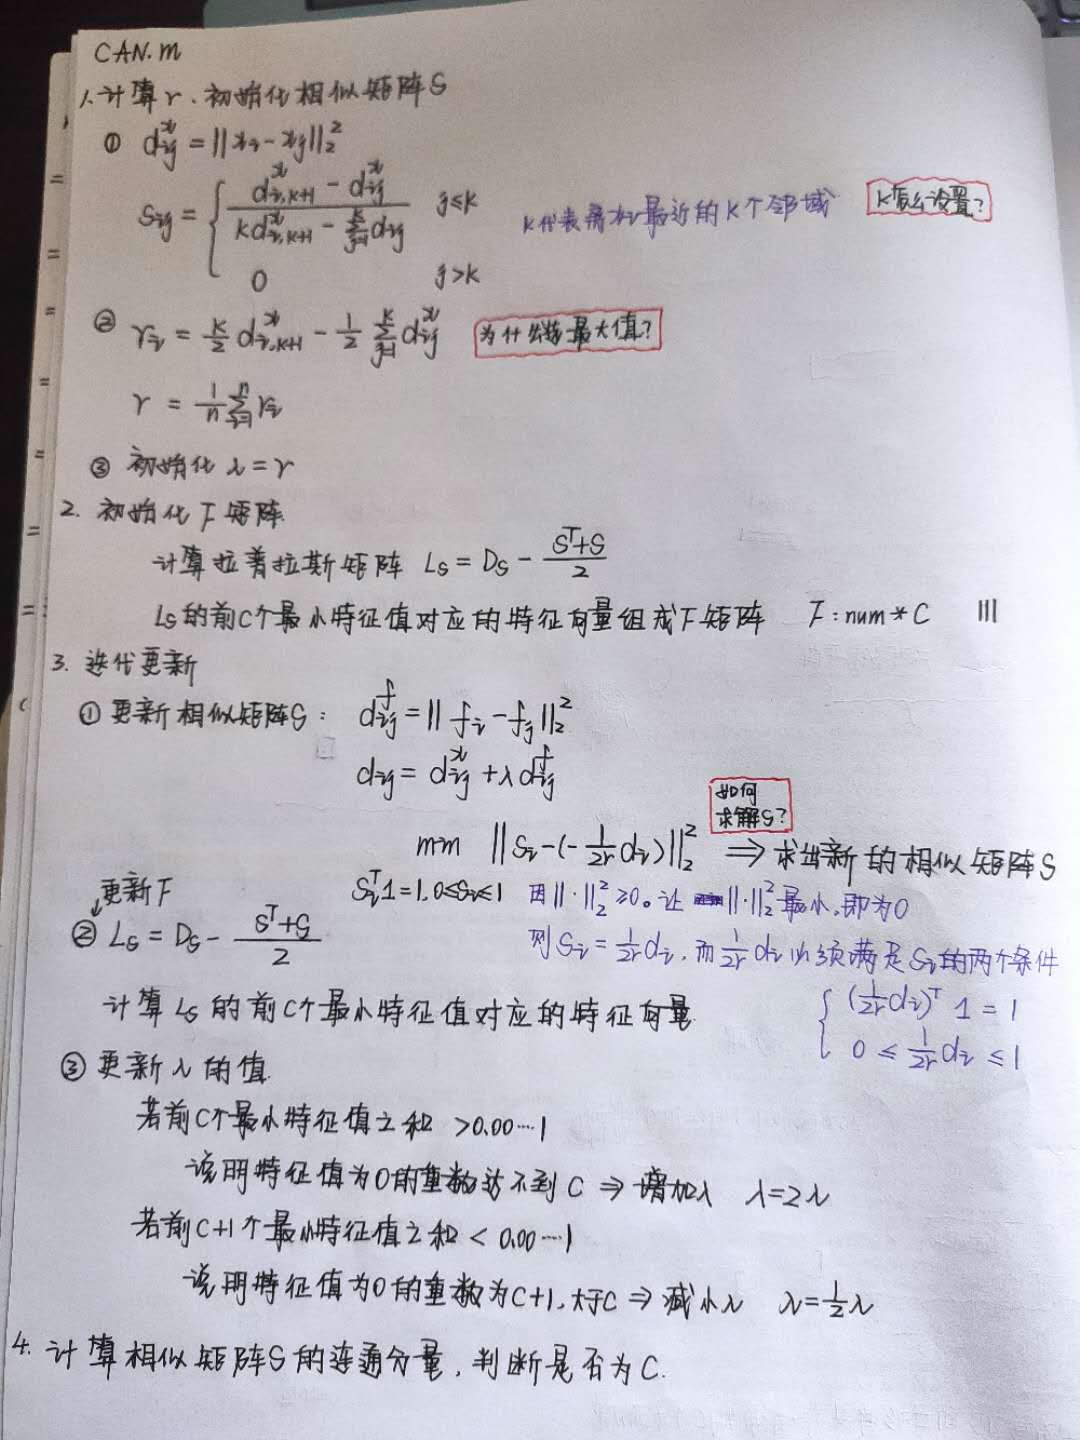 CAN.m
1.计算r、初始化相似矩阵S
① d_{ij}^x = ||x_i - x_j||_2^2
S_{ij} = { \frac{d_{i,k+1}^x - d_{ij}^x}{k d_{i,k+1}^x - \sum_{j=1}^k d_{ij}} j≤k
0 j>k
k代表离x_i最近的k个邻域
k怎么设置?
② r_i = \frac{k}{2} d_{i,k+1}^x - \frac{1}{2} \sum_{j=1}^k d_{ij}^x
为什么选最大值?
r = \frac{1}{n} \sum_{i=1}^n r_i
③ 初始化 λ=r
2. 初始化F矩阵
计算拉普拉斯矩阵 L_S = D_S - \frac{S^T+S}{2}
L_S的前C个最小特征值对应的特征向量组成F矩阵 F:num*C
3. 迭代更新
① 更新相似矩阵S: d_{ij}^f = ||f_i - f_j||_2^2
d_{ij} = d_{ij}^x + λd_{ij}^f
如何
求解S?
min ||S_i-(-\frac{1}{2r}d_i)||_2^2 ⇒ 求出新的相似矩阵S
S_i^T 1=1, 0≤S_i≤1 因||·||_2^2 ≥0。让 ||·||_2^2最小,即为0
则S_i = \frac{1}{2r}d_i, 而\frac{1}{2r}d_i必须满足S_i的两个条件
{ (\frac{1}{2r}d_i)^T 1 = 1
0 ≤ \frac{1}{2r}d_i ≤ 1
更新F
② L_S = D_S - \frac{S^T+S}{2}
计算L_S的前C个最小特征值对应的特征向量
③ 更新λ的值
若前C个最小特征值之和 >0.00…1
说明特征值为0的重数达不到C ⇒ 增加λ λ=2λ
若前C+1个最小特征值之和 < 0.00…1
说明特征值为0的重数为C+1,大于C ⇒ 减小λ λ=\frac{1}{2}λ
4. 计算相似矩阵S的连通分量,判断是否为C.